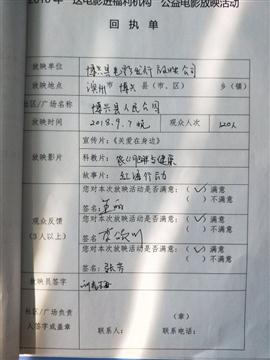 2018年“送电影进福利机构”公益电影放映活动
回 执 单
放映单位 博兴县电影发行放映公司
放映地点 滨州市 博兴 县(市、区) 乡(镇)
社区/广场名称 博兴县人民公园
放映时间 2018.9.7 晚 观众人次 120人
放映影片
宣传片:《关爱在身边》
科教片: 与健康
故事片: 红海行动
观众反馈
(3人以上)
您对本次放映活动是否满意:(✓)满意
( )不满意
签名:
您对本次放映活动是否满意:(✓)满意
( )不满意
签名:
您对本次放映活动是否满意:(✓)满意
( )不满意
签名:张芳
放映员签字
社区/广场负责
人签字或盖章
(章)
联系人: 联系电话: